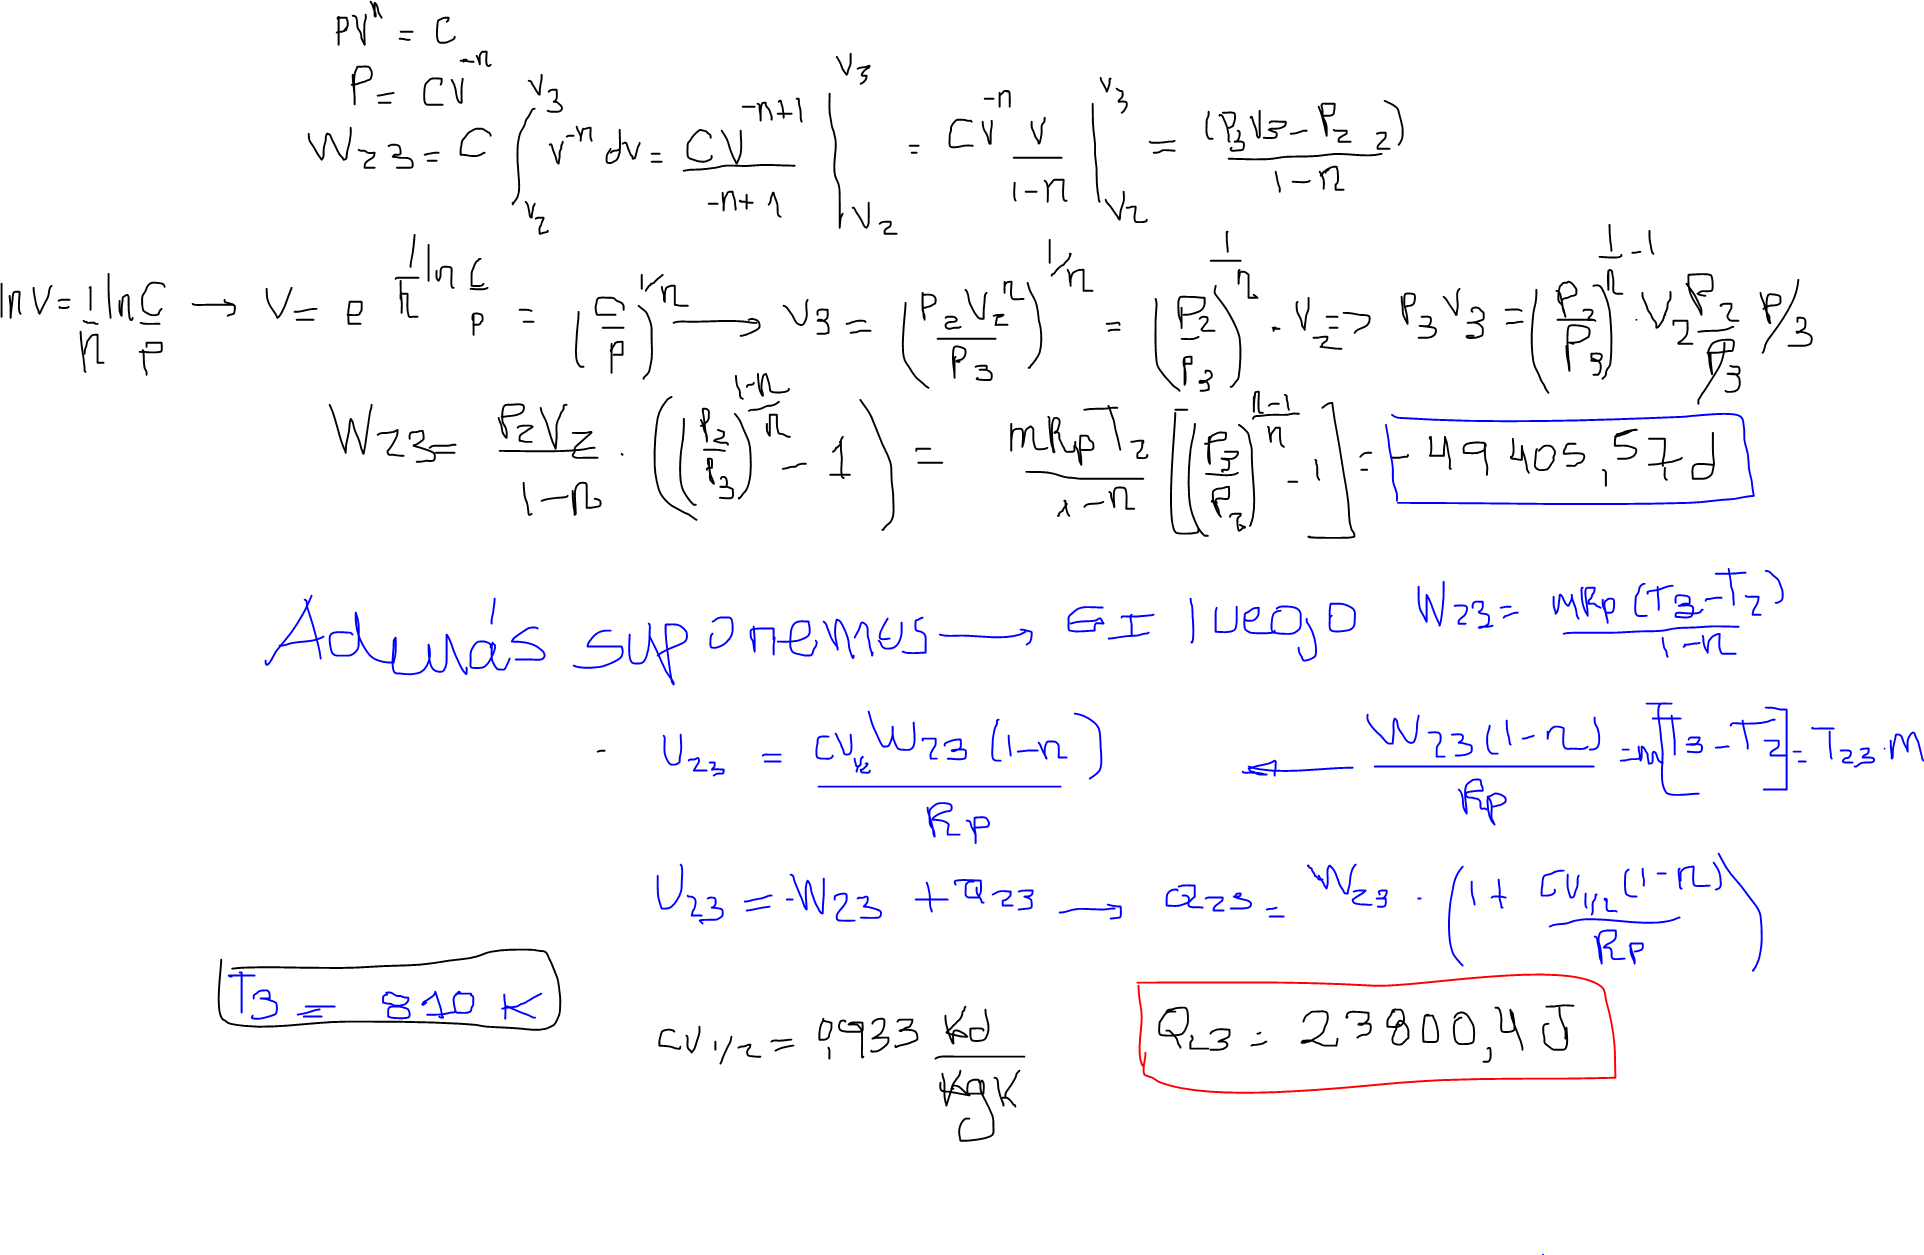 PVⁿ = C
P = CV⁻ⁿ
W₂₃ = C ∫_{V₂}^{V₃} V⁻ⁿ dv = CV⁻ⁿ⁺¹ / (-n+1) |_{V₂}^{V₃} = CV⁻ⁿ V / (1-n) |_{V₂}^{V₃} = (P₃V₃ - P₂ ₂) / (1-n)
ln V = 1/n ln C/P → V = e^{1/n ln C/P} = (C/P)^{1/n} → V₃ = (P₂V₂ⁿ / P₃)^{1/n} = (P₂/P₃)^{1/n} · V₂ => P₃V₃ = (P₂/P₃)^{1/n - 1} · V₂ P₂/P₃ P₃
W₂₃ = P₂V₂ / (1-n) · ((P₂/P₃)^{(1-n)/n} - 1) = mRpT₂ / (1-n) [(P₃/P₂)^{(n-1)/n} - 1] = -49405,57 J
Además suponemos → GI luego W₂₃ = mRp (T₃ - T₂) / (1-n)
- U₂₃ = CV₁/₂ W₂₃ (1-n) / Rp ← W₂₃ (1-n) / Rp = m[T₃ - T₂] = T₂₃ · m
U₂₃ = -W₂₃ + Q₂₃ → Q₂₃ = W₂₃ · (1 + CV₁/₂ (1-n) / Rp)
T₃ = 810 K
CV₁/₂ = 0,933 KJ / KgK
Q₂₃ = 23800,4 J